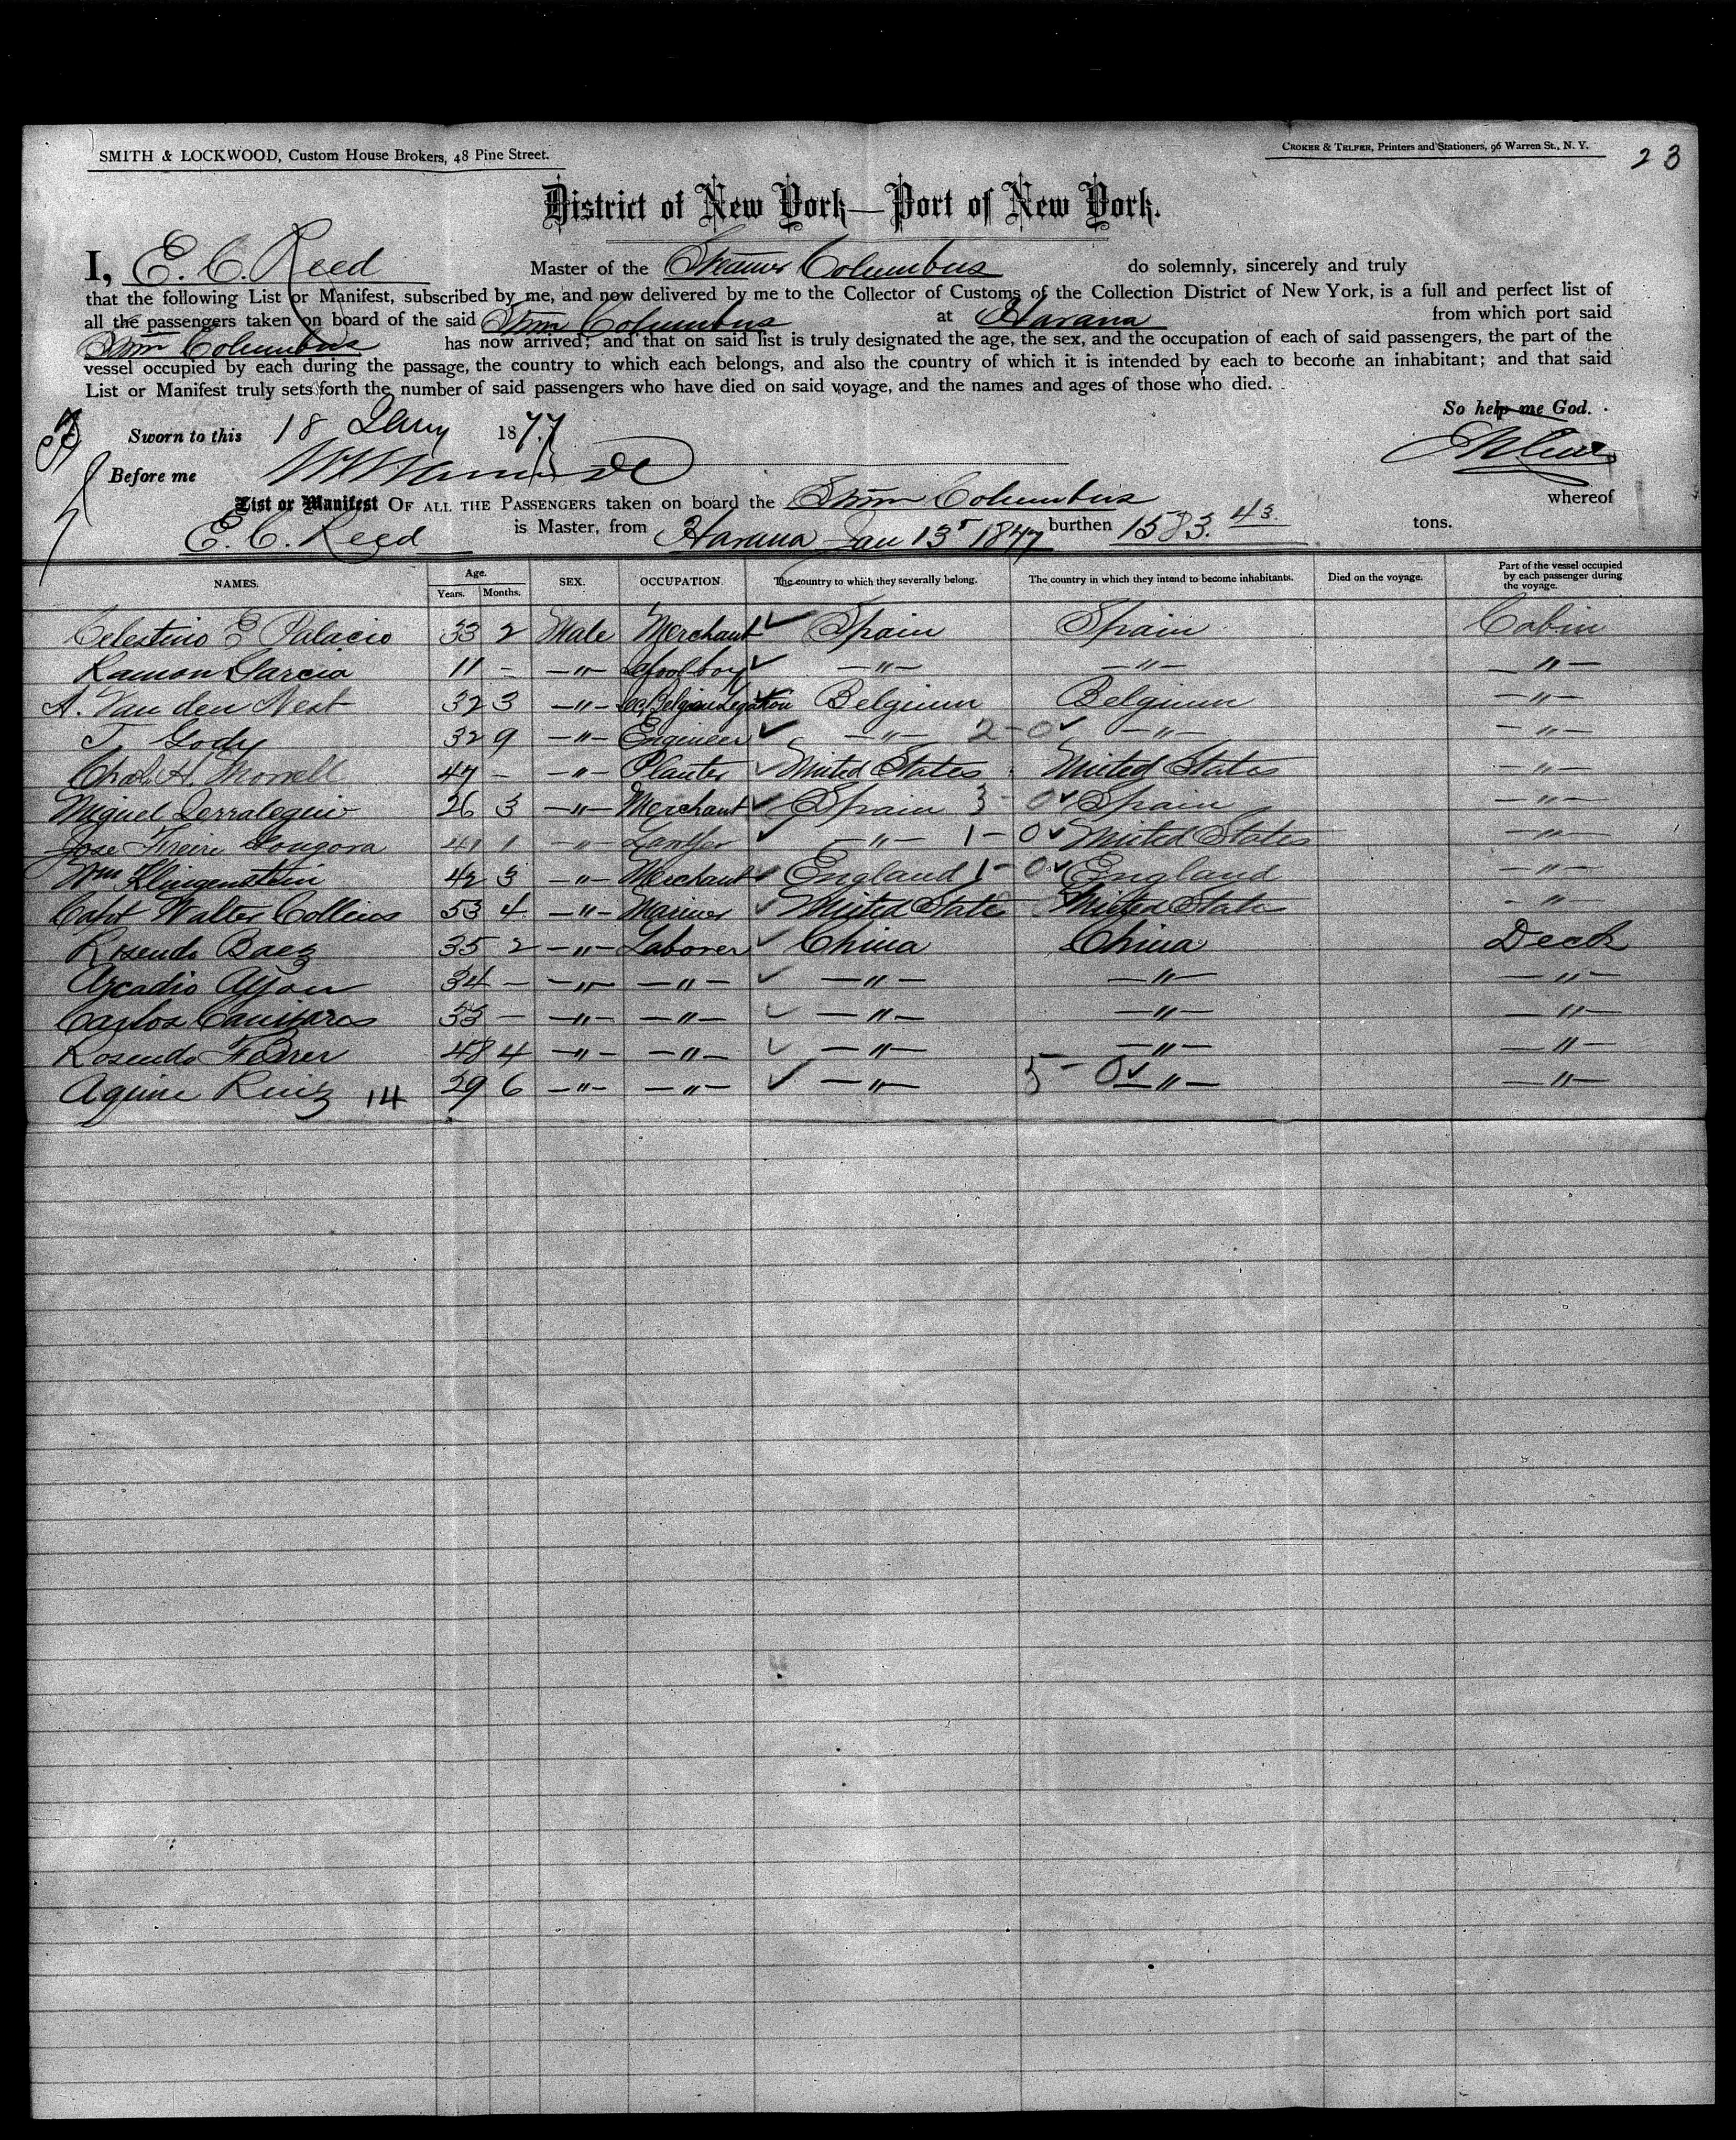 SMITH & LOCKWOOD, Custom House Brokers, 48 Pine Street.
CROKER & TELFER, Printers and Stationers, 96 Warren St., N. Y.
23
District of New York—Port of New York.
I, E. C. Reed Master of the Steamer Columbus do solemnly, sincerely and truly
that the following List or Manifest, subscribed by me, and now delivered by me to the Collector of Customs of the Collection District of New York, is a full and perfect list of
all the passengers taken on board of the said Stmr Columbus at Havana from which port said
Stmr Columbus has now arrived; and that on said list is truly designated the age, the sex, and the occupation of each of said passengers, the part of the
vessel occupied by each during the passage, the country to which each belongs, and also the country of which it is intended by each to become an inhabitant; and that said
List or Manifest truly sets forth the number of said passengers who have died on said voyage, and the names and ages of those who died.
So help me God.
Sworn to this 18 Jany 1877
Before me
List or Manifest OF ALL THE PASSENGERS taken on board the Stmr Columbus whereof
E. C. Reed is Master, from Havana Jan 13th 1847 burthen 1583. 43 tons.
NAMES. Age. Years. Months. SEX. OCCUPATION. The country to which they severally belong. The country in which they intend to become inhabitants. Died on the voyage. Part of the vessel occupied by each passenger during the voyage.
Celestino E Palacio 33 2 Male Merchant ✓ Spain Spain Cabin
Ramon Garcia 11 - -"- Schoolboy ✓ -"- -"- -"-
A. Van den Nest 32 3 -"- Belgian Legation Belgium Belgium -"-
T. Gody 32 9 -"- Engineer ✓ -"- 2-0✓ -"- -"-
Chas. H. Morrell 47 - -"- Planter ✓ United States United States -"-
Miguel 26 3 -"- Merchant ✓ Spain 3-0✓ Spain -"-
Jose Freire Gongora 41 1 -"- Lawyer ✓ -"- 1-0✓ United States -"-
Wm Klingenstein 42 3 -"- Merchant ✓ England 1-0✓ England -"-
Capt Walter Collins 53 4 -"- Mariner ✓ United States United States -"-
Rosendo Baez 35 2 -"- Laborer ✓ China China Deck
Arcadio Ayon 34 - -"- -"- ✓ -"- -"- -"-
Carlos Canizares 33 - -"- -"- ✓ -"- -"- -"-
Rosendo Ferrer 48 4 -"- -"- ✓ -"- -"- -"-
Aguire Ruiz 14 29 6 -"- -"- ✓ -"- 5-0✓ -"- -"-